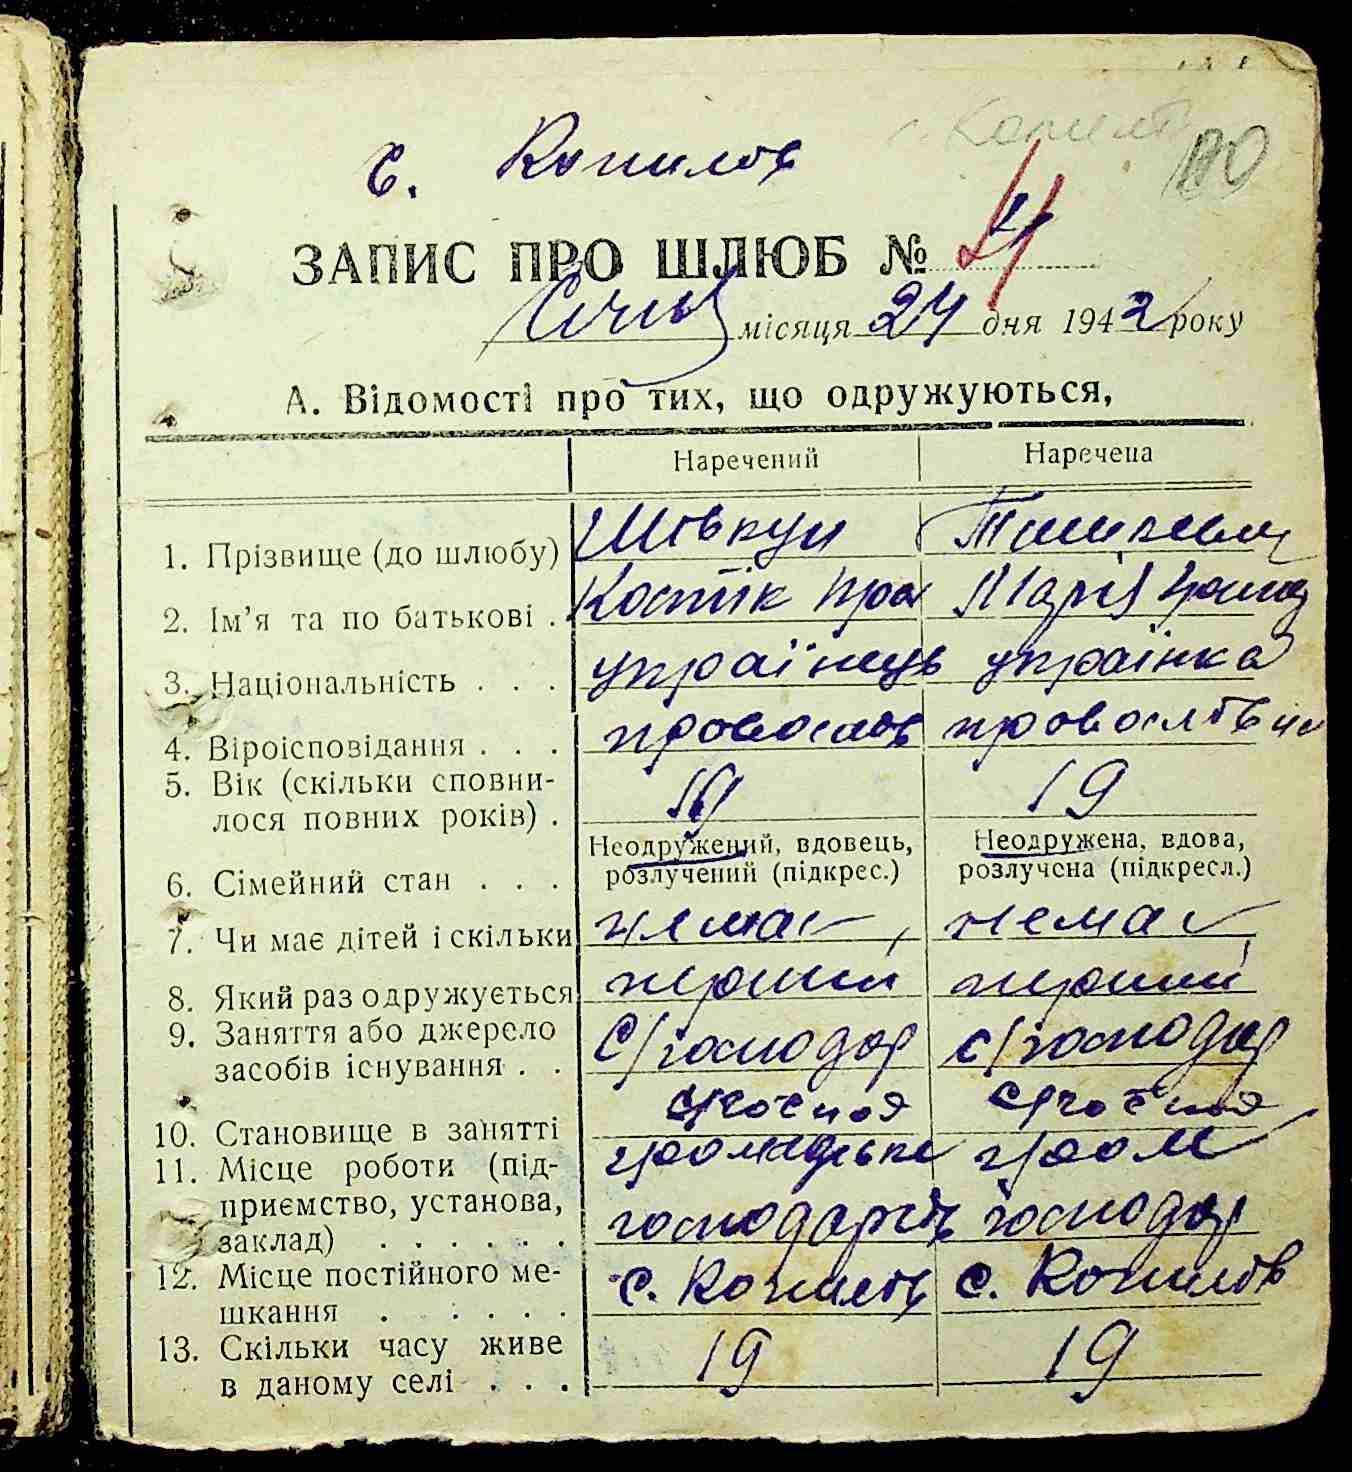 с. Копилов
ЗАПИС ПРО ШЛЮБ № 4
Січня місяця 24 дня 1942 року
А. Відомості про тих, що одружуються,
Наречений Наречена
1. Прізвище (до шлюбу) Шовкун
2. Ім'я та по батькові . Костік Про Марія
3. Національність . . . українець українка
4. Віроісповідання . . . провослов провословна
5. Вік (скільки сповни-
лося повних років) . 19 19
Неодружений, вдовець, Неодружена, вдова,
6. Сімейний стан . . . розлучений (підкрес.) розлучена (підкресл.)
7. Чи має дітей і скільки немає немає
8. Який раз одружується перший перший
9. Заняття або джерело
засобів існування . . С/господар с/господар
10. Становище в занятті
11. Місце роботи (під- громадське гром
приємство, установа,
заклад) . . . . . . господарств господар
12. Місце постійного ме-
шкання . . . . . с. Копилов с. Копилов
13. Скільки часу живе
в даному селі . . . 19 19